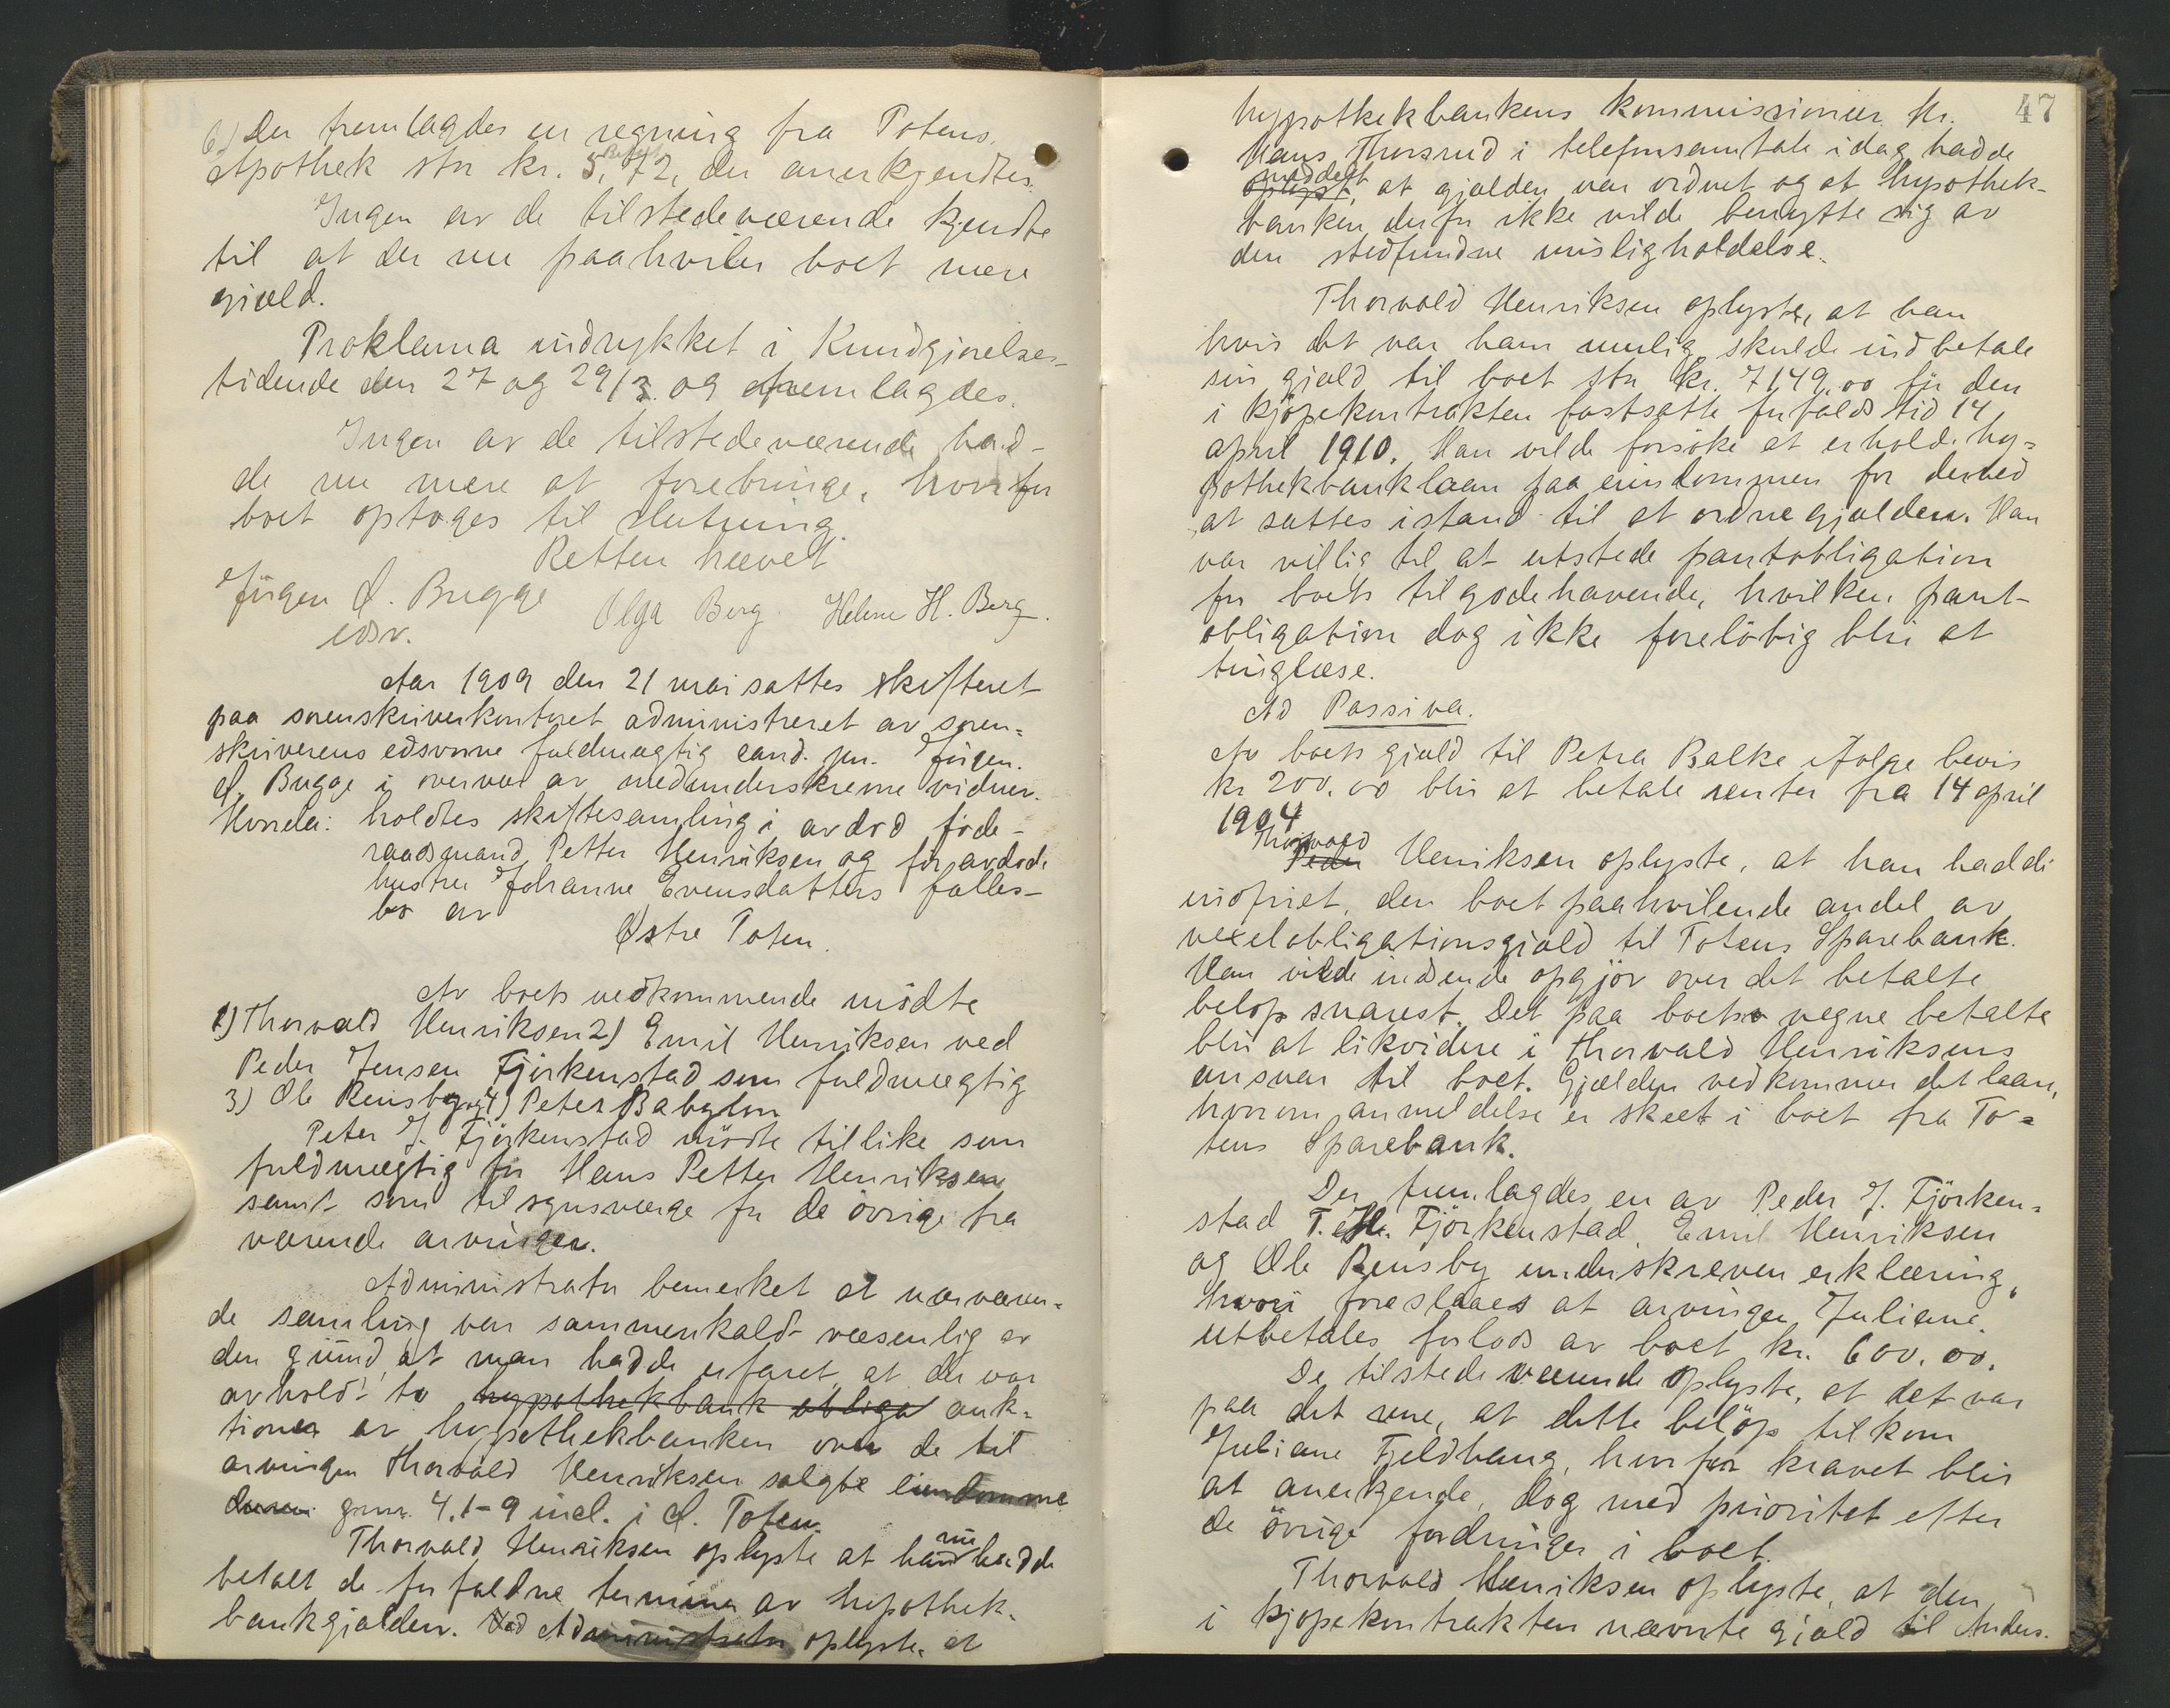 6.) Der fremlagdes en regning fra Totens
Apothek stor kr. 5,72, der anerkjendtes.
Ingen av de tilstedeværende kjendte
til at der nu paahviler boet mere
gjæld.
Proklama indrykket i Kundgjørelses-
tidende den 27 og 29/3. og fremlagdes.
Ingen av de tilstedeværende had-
de nu mere at forebringe, hvorfor
boet optoges til slutning.
Retten hævet
Jørgen Ø. Bugge Olga Berg. Helene H. Berg.
edsv.
Aar 1909 den 21 mai sattes skifteret
paa sorenskriverkontoret administreret av soren-
skriverens edsvorne fuldmægtig cand. jur. Jørgen
Ø. Bugge i overvær av medunderskrevne vidner.
Hvorda: holdtes skiftesamling i avdød føde-
raadsmand Petter Henriksen og før avdøde
hustru Johanne Evensdatters fælles-
bo av
Østre Toten.
Av boets vedkommende mödte
1) Thorvald Henriksen 2) Emil Henriksen ved
Peder Jensen Fjörkenstad som fuldmægtig
3) Ole Rensby og 4) Peter Babylon
Peter J. Fjörkenstad mödte tillike som
fuldmægtig for Hans Petter Henriksen
samt som tilsynsværge for de övrige fra
værende arvinger.
Administrator bemerket at nærværen-
de samling var sammenkaldt væsenlig av
den grund, at man hadde erfaret, at der var
avholdt to hypothekbank obliga auk-
tioner av hypothekbanken over de til
arvingen Thorvald Henriksen solgte eiendomme
gnr. 4, 1-9 incl. i Ø. Toten.
Thorvald Henriksen oplyste at han nu hadde
betalt de forfaldne terminer av hypothek-
bankgjælden. Ved Administrator oplyste, at
47
hypothekbankens kommissionær Hr.
Hans Thorsrud i telefonsamtale idag hadde
meddelt
oplyst, at gjælden var ordnet og at hypothek-
banken derfor ikke vilde benytte sig av
den stedfundne misligholdelse.
Thorvald Henriksen oplyste, at han
hvis det var ham mulig skulde indbetale
sin gjæld til boet stor kr. 7149,00 før den
i kjøpekontrakten fastsatte forfalds tid 14
april 1910. Han vilde forsöke at erholde hy-
pothekbanklaan paa eiendommen for derved
at sættes istand til at ordne gjælden. Han
var villig til at utstede pantobligation
for boets tilgodehavende, hvilken pant-
obligation dog ikke foreløbig blir at
tinglæse.
Ad Passiva.
Av boets gjæld til Petra Balke ifølge bevis
kr 200,00 blir at betale renter fra 14 april
1904
Thorvald
Peder Henriksen oplyste, at han hadde
indfriet den boet paahvilende andel av
vexelobligationsgjæld til Totens Sparebank.
Han vilde indsende opgjør over det betalte
beløp snarest. Det paa boets vegne betalte
blir at likvidere i Thorvald Henriksens
ansvar til boet. Gjælden vedkommer det laan,
hvorom anmeldelse er skeet i boet fra To-
tens Sparebank.
Der fremlagdes en av Peder J. Fjörken-
stad T. Fjörkenstad, Emil Henriksen
og Ole Rensby underskreven erklæring,
hvori foreslaaes at arvingen Juliane
utbetales forlods av boet kr. 600,00.
De tilstedeværende oplyste, at det var
paa det rene, at dette belöp tilkom
Juliane Fjeldhaug, hvorfor kravet blir
at anerkjende, dog med prioritet efter
de övrige fordringer i boet.
Thorvald Henriksen oplyste, at den
i kjøpekontrakten nævnte gjæld til Anders